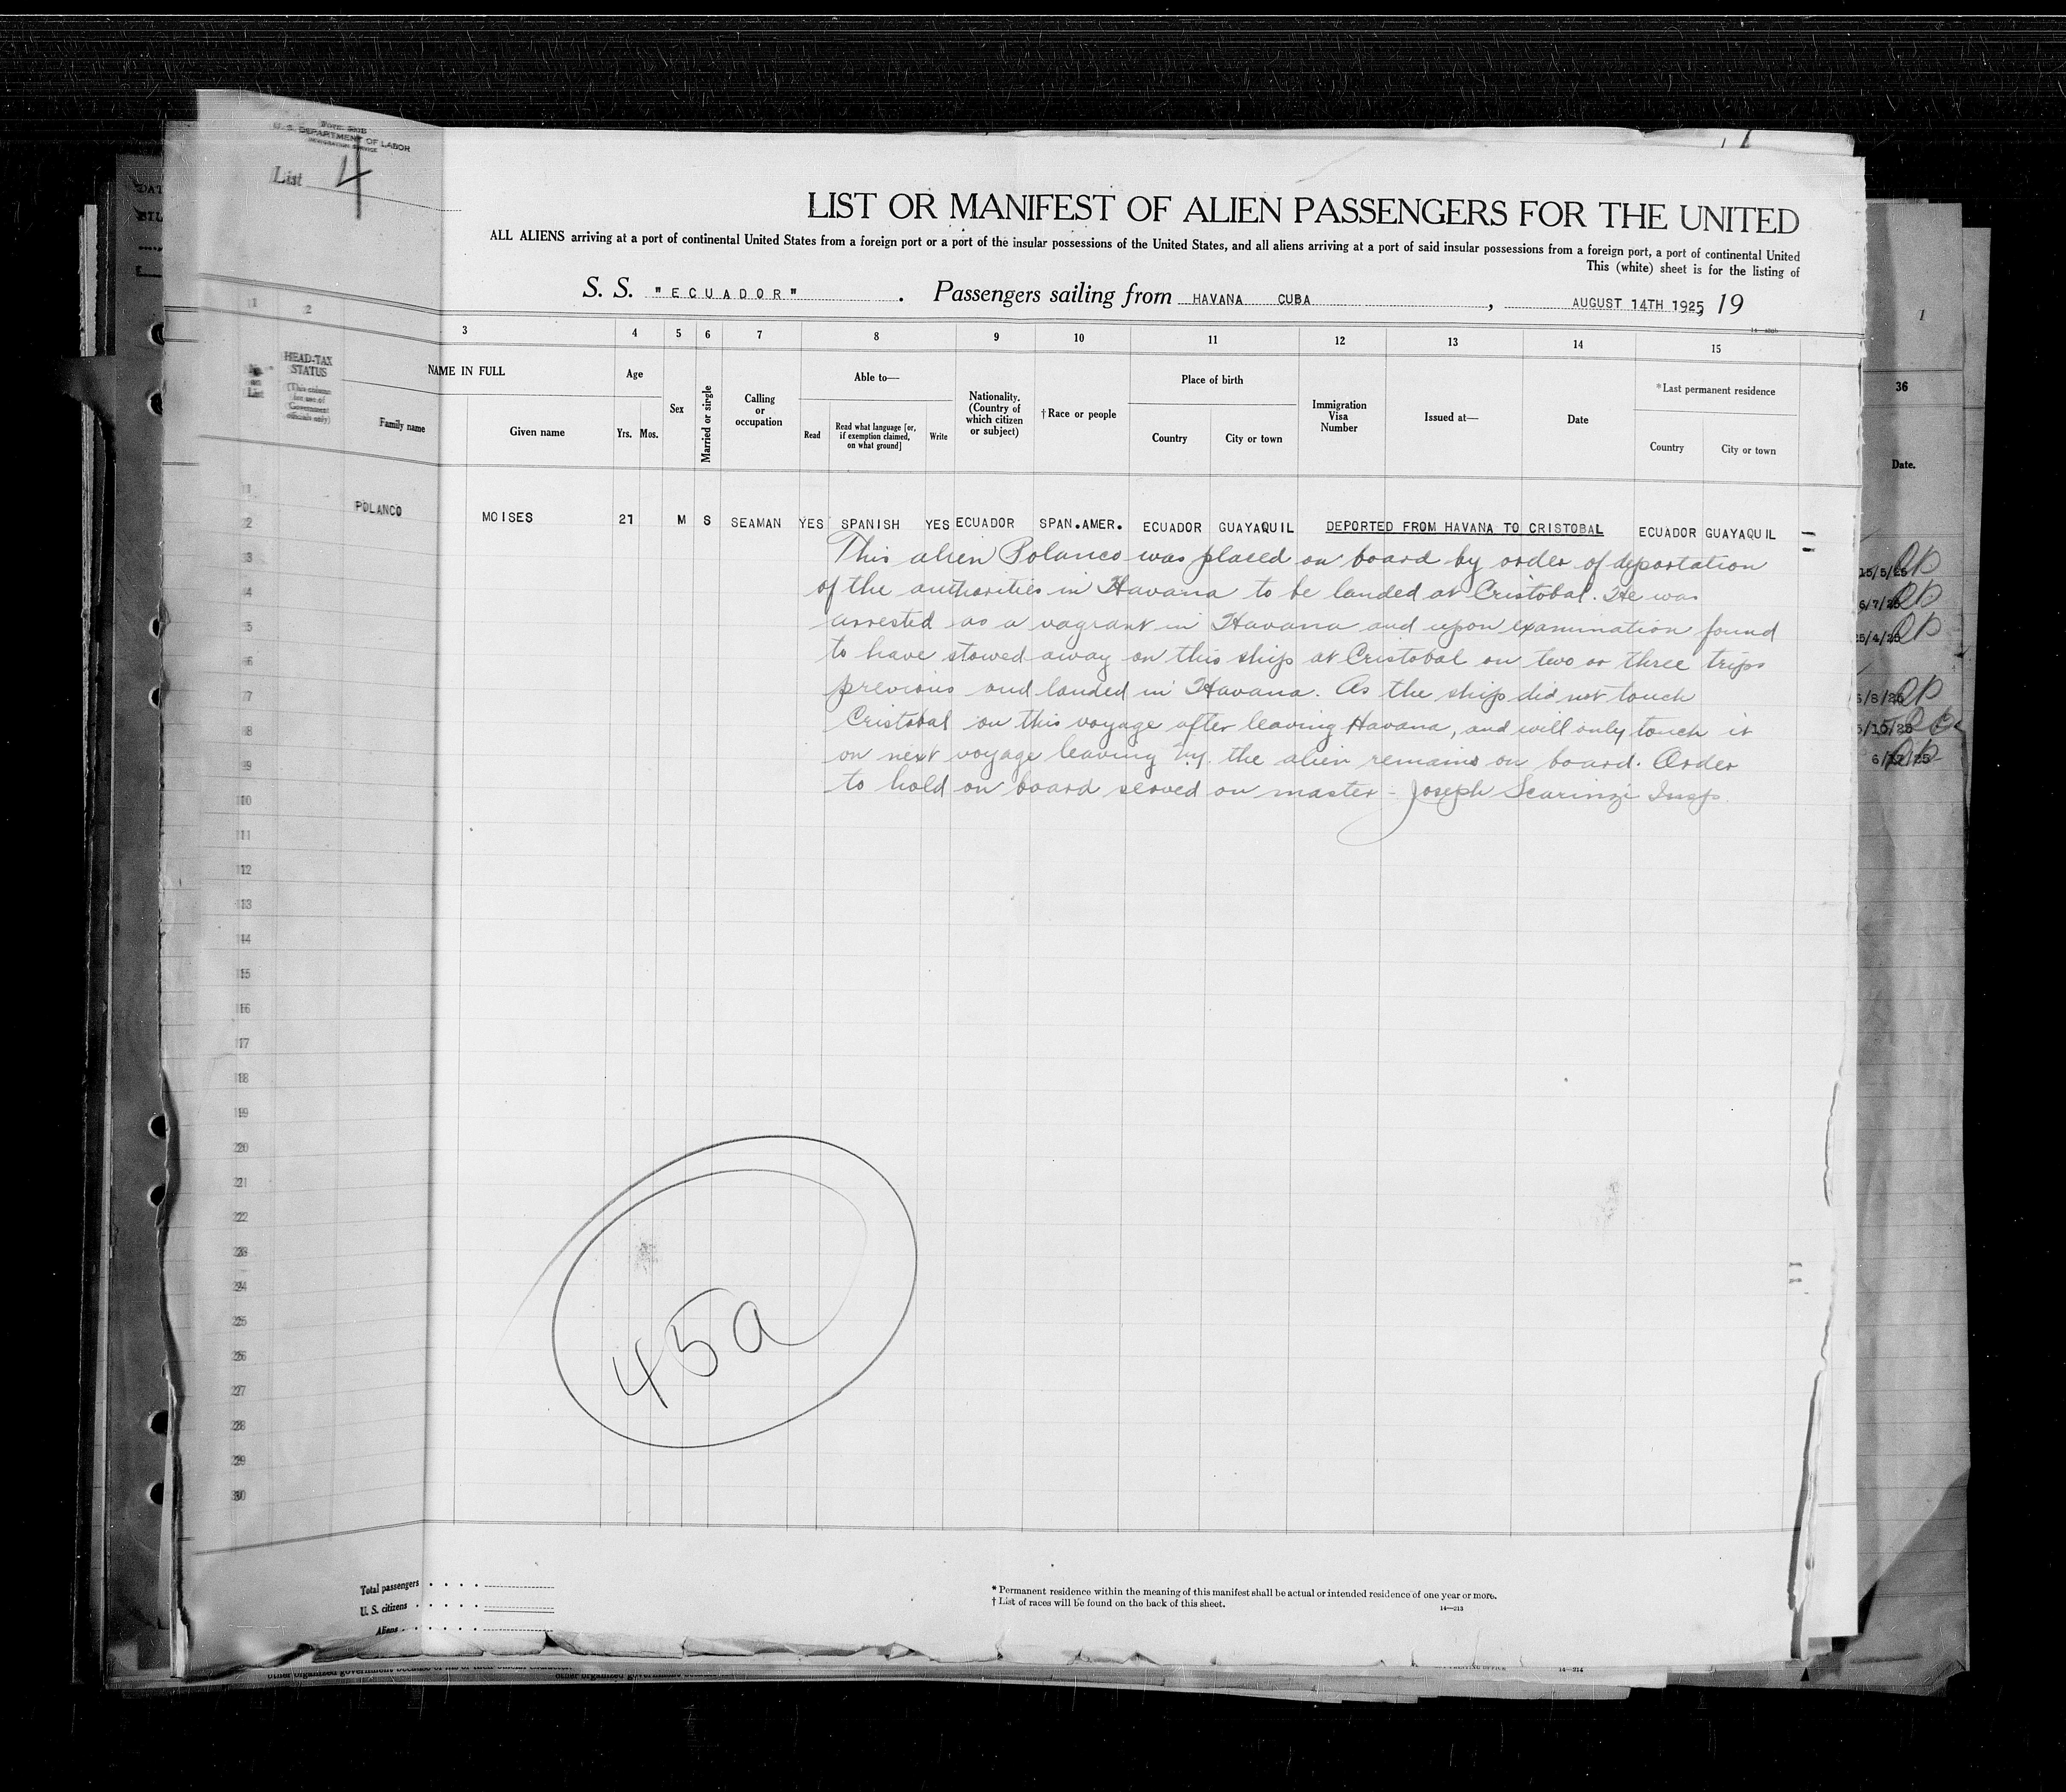 Form 500B
U. S. DEPARTMENT OF LABOR
IMMIGRATION SERVICE
List 4
LIST OR MANIFEST OF ALIEN PASSENGERS FOR THE UNITED
ALL ALIENS arriving at a port of continental United States from a foreign port or a port of the insular possessions of the United States, and all aliens arriving at a port of said insular possessions from a foreign port, a port of continental United
This (white) sheet is for the listing of
S. S. "ECUADOR" . Passengers sailing from HAVANA CUBA , AUGUST 14TH 1925, 19
1 2 3 4 5 6 7 8 9 10 11 12 13 14 15
No. on List
HEAD-TAX STATUS
(This column for use of Government officials only)
NAME IN FULL
Family name
Given name
Age
Yrs. Mos.
Sex
Married or single
Calling or occupation
Able to—
Read
Read what language [or, if exemption claimed, on what ground]
Write
Nationality. (Country of which citizen or subject)
†Race or people
Place of birth
Country
City or town
Immigration Visa Number
Issued at—
Date
*Last permanent residence
Country
City or town
1
36
Date.
1
2 POLANCO MOISES 27 M S SEAMAN YES SPANISH YES ECUADOR SPAN.AMER. ECUADOR GUAYAQUIL DEPORTED FROM HAVANA TO CRISTOBAL ECUADOR GUAYAQUIL
This alien Polanco was placed on board by order of deportation
of the authorities in Havana to be landed at Cristobal. He was
arrested as a vagrant in Havana and upon examination found
to have stowed away on this ship at Cristobal on two or three trips
previous and landed in Havana. As the ship did not touch
Cristobal on this voyage after leaving Havana, and will only touch it
on next voyage leaving N.Y. the alien remains on board. Order
to hold on board served on master - Joseph Scarinzi Insp.
3
4
5
6
7
8
9
10
11
12
13
14
15
16
17
18
19
20
21
22
23
24
25
26
27
28
29
30
45a
15/5/25
6/7/25
25/4/25
Total passengers
U. S. citizens
Aliens
* Permanent residence within the meaning of this manifest shall be actual or intended residence of one year or more.
† List of races will be found on the back of this sheet.
14—213
14—214